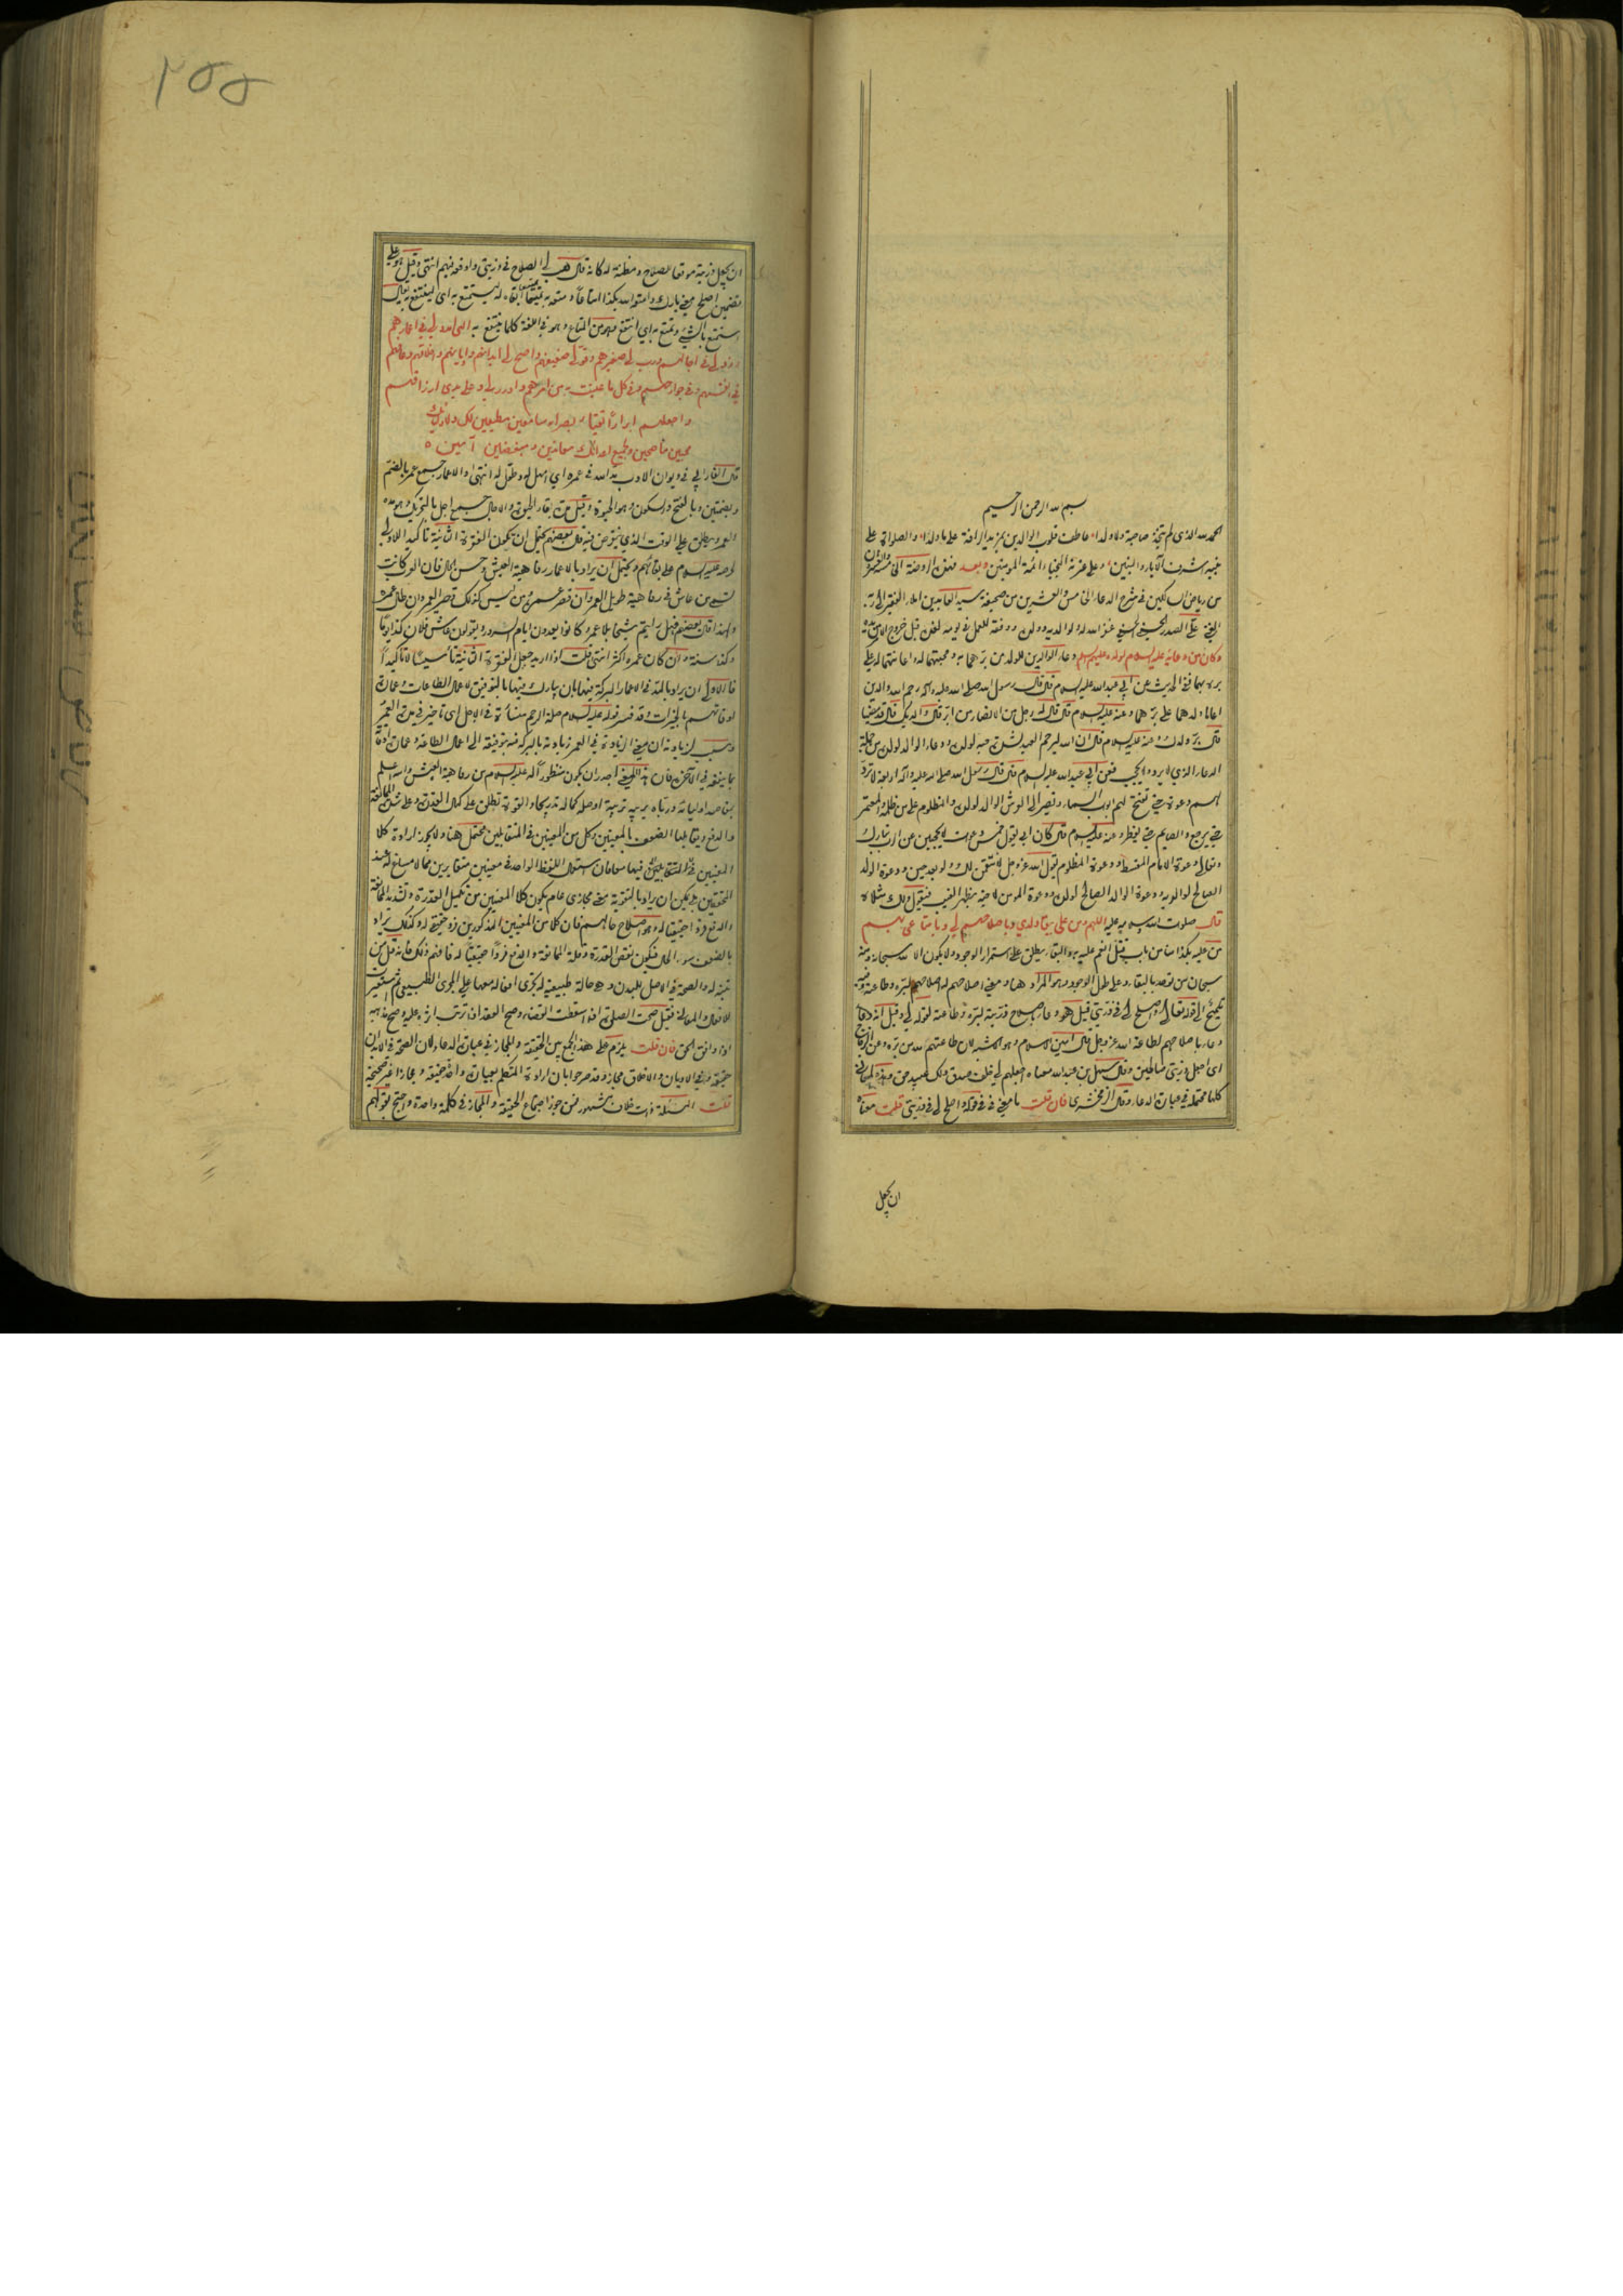 بسم الله الرحمن الرحيم
الحمد لله الذي لم يتخذ صاحبة ولا ولدا عاطف قلوب الوالدين بمزيد الرافة على ما ولدا والصلوة على
نبيه اشرف الآباء والبنين وعلى عترته النجباء ائمة المؤمنين وبعد فهذه الروضة الخامسة والعشرون
من رياض السالكين في شرح الدعاء الخامس والعشرين من صحيفة سيد العابدين املاء الفقير الى ربه
الغني علي الصدر الحسيني الحسني غفر الله له ولوالديه وولده ووفقه للعمل في يومه لغده قبل خروج الامر من يده
وكان من دعائه عليه السلام لولده عليهم السلام دعاء الوالدين للولد من برهما به ومحبتهما له واعانتهما له على
بره بهما ففي الحديث عن ابي عبد الله عليه السلام قال قال رسول الله صلى الله عليه وآله رحم الله والدين
اعانا ولدهما على برهما وعنه عليه السلام قال قال له رجل من الانصار من ابر قال والديك قال قد مضيا
قال بر ولدك وعنه عليه السلام قال ان الله ليرحم العبد لشدة حبه لولده ودعاء الوالد لولده من جملة
الدعاء الذي لا يرد ولا يحجب فعن ابي عبد الله عليه السلام قال قال رسول الله صلى الله عليه وآله اربعة لا ترد
لهم دعوة حتى تفتح لهم ابواب السماء وتصير الى العرش الوالد لولده والمظلوم على من ظلمه والمعتمر
حتى يرجع والصايم حتى يفطر وعنه عليه السلام قال كان ابي يقول خمس دعوات لا يحجبن عن الرب تبارك
وتعالى دعوة الامام المقسط ودعوة المظلوم يقول الله عز وجل لانتقمن لك ولو بعد حين ودعوة الولد
الصالح لوالديه ودعوة الوالد الصالح لولده ودعوة المومن لاخيه بظهر الغيب فيقول ولك مثلاه
قال صلوات الله وسلامه عليه اللهم ومن علي ببقاء ولدي وباصلاحهم لي وبامتاعي بهم
من عليه بكذا منا من باب قتل انعم عليه به والبقاء يطلق على استمرار الوجود ولا يكون الا لله سبحانه ومنه
سبحان من توحد بالبقاء وعلى طول الوجود وهو المراد هنا ومعنى اصلاحهم له اصلاحهم لبره وطاعته وفيه
تلميح الى قوله تعالى واصلح لي في ذريتي قيل هو دعاء باصلاح ذريته لبره وطاعته لقوله لي وقيل انه دعاء
دعاء باصلاحهم لطاعة الله عز وجل قال امين الاسلام وهو الاشبه لان طاعتهم لله من بره وعن الزجاج
اى اجعل ذريتي صالحين وقال سهل بن عبد الله معناه اجعلهم لي خلف صدق ولك عبيد حق وهذه المعاني
كلها محتملة في عبارة الدعاء وقال الزمخشرى فان قلت ما معنى في في قوله واصلح لي في ذريتي قلت معناه
ان يجعل
٢٥٥
ان يجعل ذريته موقعا للصلاح ومظنة له كانه قال هب لي الصلاح في ذريتي واوقعه فيهم انتهى وقيل هو على
تضمين اصلح معنى بارك وامتعه الله بكذا امتاعا ومتعه به تمتيعا ابقاه له ليستمتع به اى لينتفع به يقال
استمتع بالشئ وتمتع به اي انتفع وهو من المتاع وهو في اللغة كلما ينتفع به الهى امدد لي في اعمارهم
وزد لي في آجالهم ورب لي صغيرهم وقو لي ضعيفهم واصح لي ابدانهم واديانهم واخلاقهم وعافهم
في انفسهم وفي جوارحهم وفي كل ما عنيت به من امرهم وادرر لي وعلى يدي ارزاقهم
واجعلهم ابرارا اتقياء بصراء سامعين مطيعين لك ولاوليائك
محبين مناصحين ولجميع اعدائك معاندين ومبغضين آمين
قال الفارابي في ديوان الادب مد الله في عمره اي امهل له وطول له انتهى والاعمار جمع عمر بالضم
وبضمتين وبالفتح والسكون وهو الحيوة وقيل مدة بقاء الحيوة والآجال جمع اجل بالتحريك وهو مدة
العمر ويطلق على الوقت الذي ينقرض فيه قال بعضهم يحتمل ان يكون الفقرة الثانية تاكيدا للاولى
لحرصه عليه السلام على بقائهم ويحتمل ان يراد بالاعمار رفاهية العيش وحسن الحال فان العرب كانت
تسمي من عاش في رفاهية طويل العمر وان قصر عمره ومن ليس كذلك قصير العمر وان طال عمره
ولهذا قال بعضهم قيل رايتم شيخا بلا عمر وكانوا يعدون ايام السرور ويقولون عاش فلان كذا يوما
وكذا سنة وان كان عمره اكثر انتهى قلت اذا اريد جعل الفقرة الثانية تاسيسا لا تاكيدا
فالاولى ان يراد بالمد في الاعمار البركة فيها بان يبارك فيها بالتوفيق لاعمال الطاعات وعمارة
اوقاتهم بالخيرات وقد فسر قوله عليه السلام صلة الرحم منسأة في الاجل اى تاخير في مدة العمر
وسبب لزيادته ان معنى الزيادة في العمر زيادته بالبركة فيه بتوفيقه الى اعمال الطاعة وعمارة اوقاته
بما ينفعه في الآخرة فان هذا المعنى اجدر ان يكون منظورا له عليه السلام من رفاهية العيش والله اعلم
بمقاصد اوليائه ورباه يربيه تربية اوصله كماله تدريجا والقوة تطلق على كمال القدرة وعلى شدة الممانعة
والدفع ويقابلها الضعف بالمعنيين وكل من المعنيين في المتقابلين محتمل هنا ولا يجوز ارادة كلا
المعنيين في المتقابلين فيهما معا فان استعمال اللفظ الواحد في معنيين متغايرين مما لا مساغ له عند
المحققين بل يمكن ان يراد بالتقوية معنى مجازي عام يكون كلا المعنيين من تكميل القدرة وتشديد الممانعة
والدفع فردا حقيقيا له وهو اصلاح حالهم فان كلا من المعنيين المذكورين فرد حقيقي له وكذلك يراد
بالضعف سوء الحال فيكون نقص القدرة وقلة الممانعة والدفع فردا حقيقيا له فافهم ذلك فانه قل من
تنبه له والصحة في الاصل للبدن وهي حالة طبيعية له تجري افعاله معها على المجرى الطبيعي ثم استعيرت
للافعال والمعاني فقيل صحت الصلوة اذا اسقطت القضاء وصح العقد اذا ترتب اثره عليه وصح مذهبه
اذا وافق الحق فان قلت يلزم على هذا الجمع بين الحقيقة والمجاز في عبارة الدعاء لان الصحة في الابدان
حقيقة وفي الاديان والاخلاق مجاز وقد صرحوا بان ارادة المتكلم بعبارة واحدة حقيقة ومجازا غير صحيحة
قلت المسئلة ذات خلاف مشهور فمن جوز اجتماع الحقيقة والمجاز في كلمة واحدة واحتج بقولهم